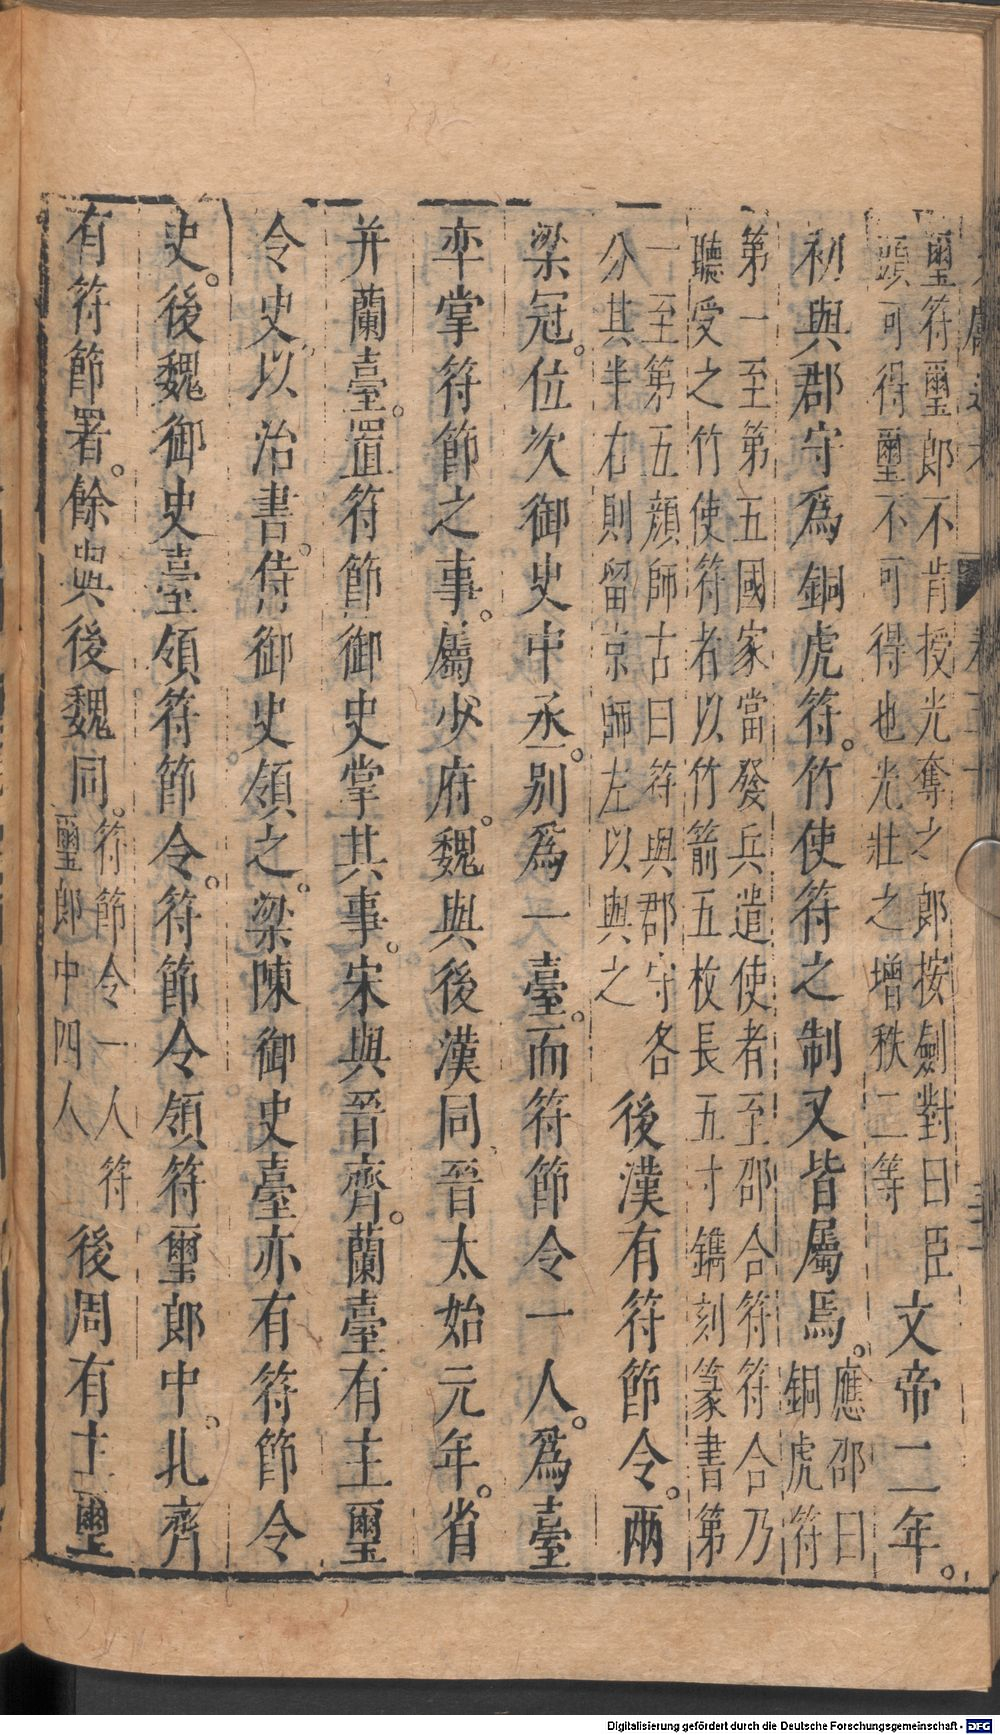 璽符璽郎不肯授光奪之郎按劍對曰臣
頭可得璽不可得也光壯之增秩二等
文帝二年。
初與郡守爲銅虎符。竹使符之制又皆屬焉。
應邵曰
銅虎符
第一至第五國家當發兵遣使者至邵合符符合乃
聽受之竹使符者以竹箭五枚長五寸鐫刻篆書第
一至第五顔師古曰符與郡守各
分其半右則留京師左以與之
後漢有符節令。兩
梁冠。位次御史中丞。別爲一臺。而符節令一人。爲臺
率掌符節之事。屬少府。魏與後漢同晉太始元年。省
并蘭臺。置符節御史掌其事。宋與晉齊。蘭臺有主璽
令史以治書。侍御史領之。梁陳御史臺亦有符節令
史。後魏御史臺領符節令。符節令領符璽郎中。北齊
有符節署。餘與後魏同。
符節令一人符
璽郎中四人
後周有主璽
Digitalisierung gefördert durch die Deutsche Forschungsgemeinschaft - DFG